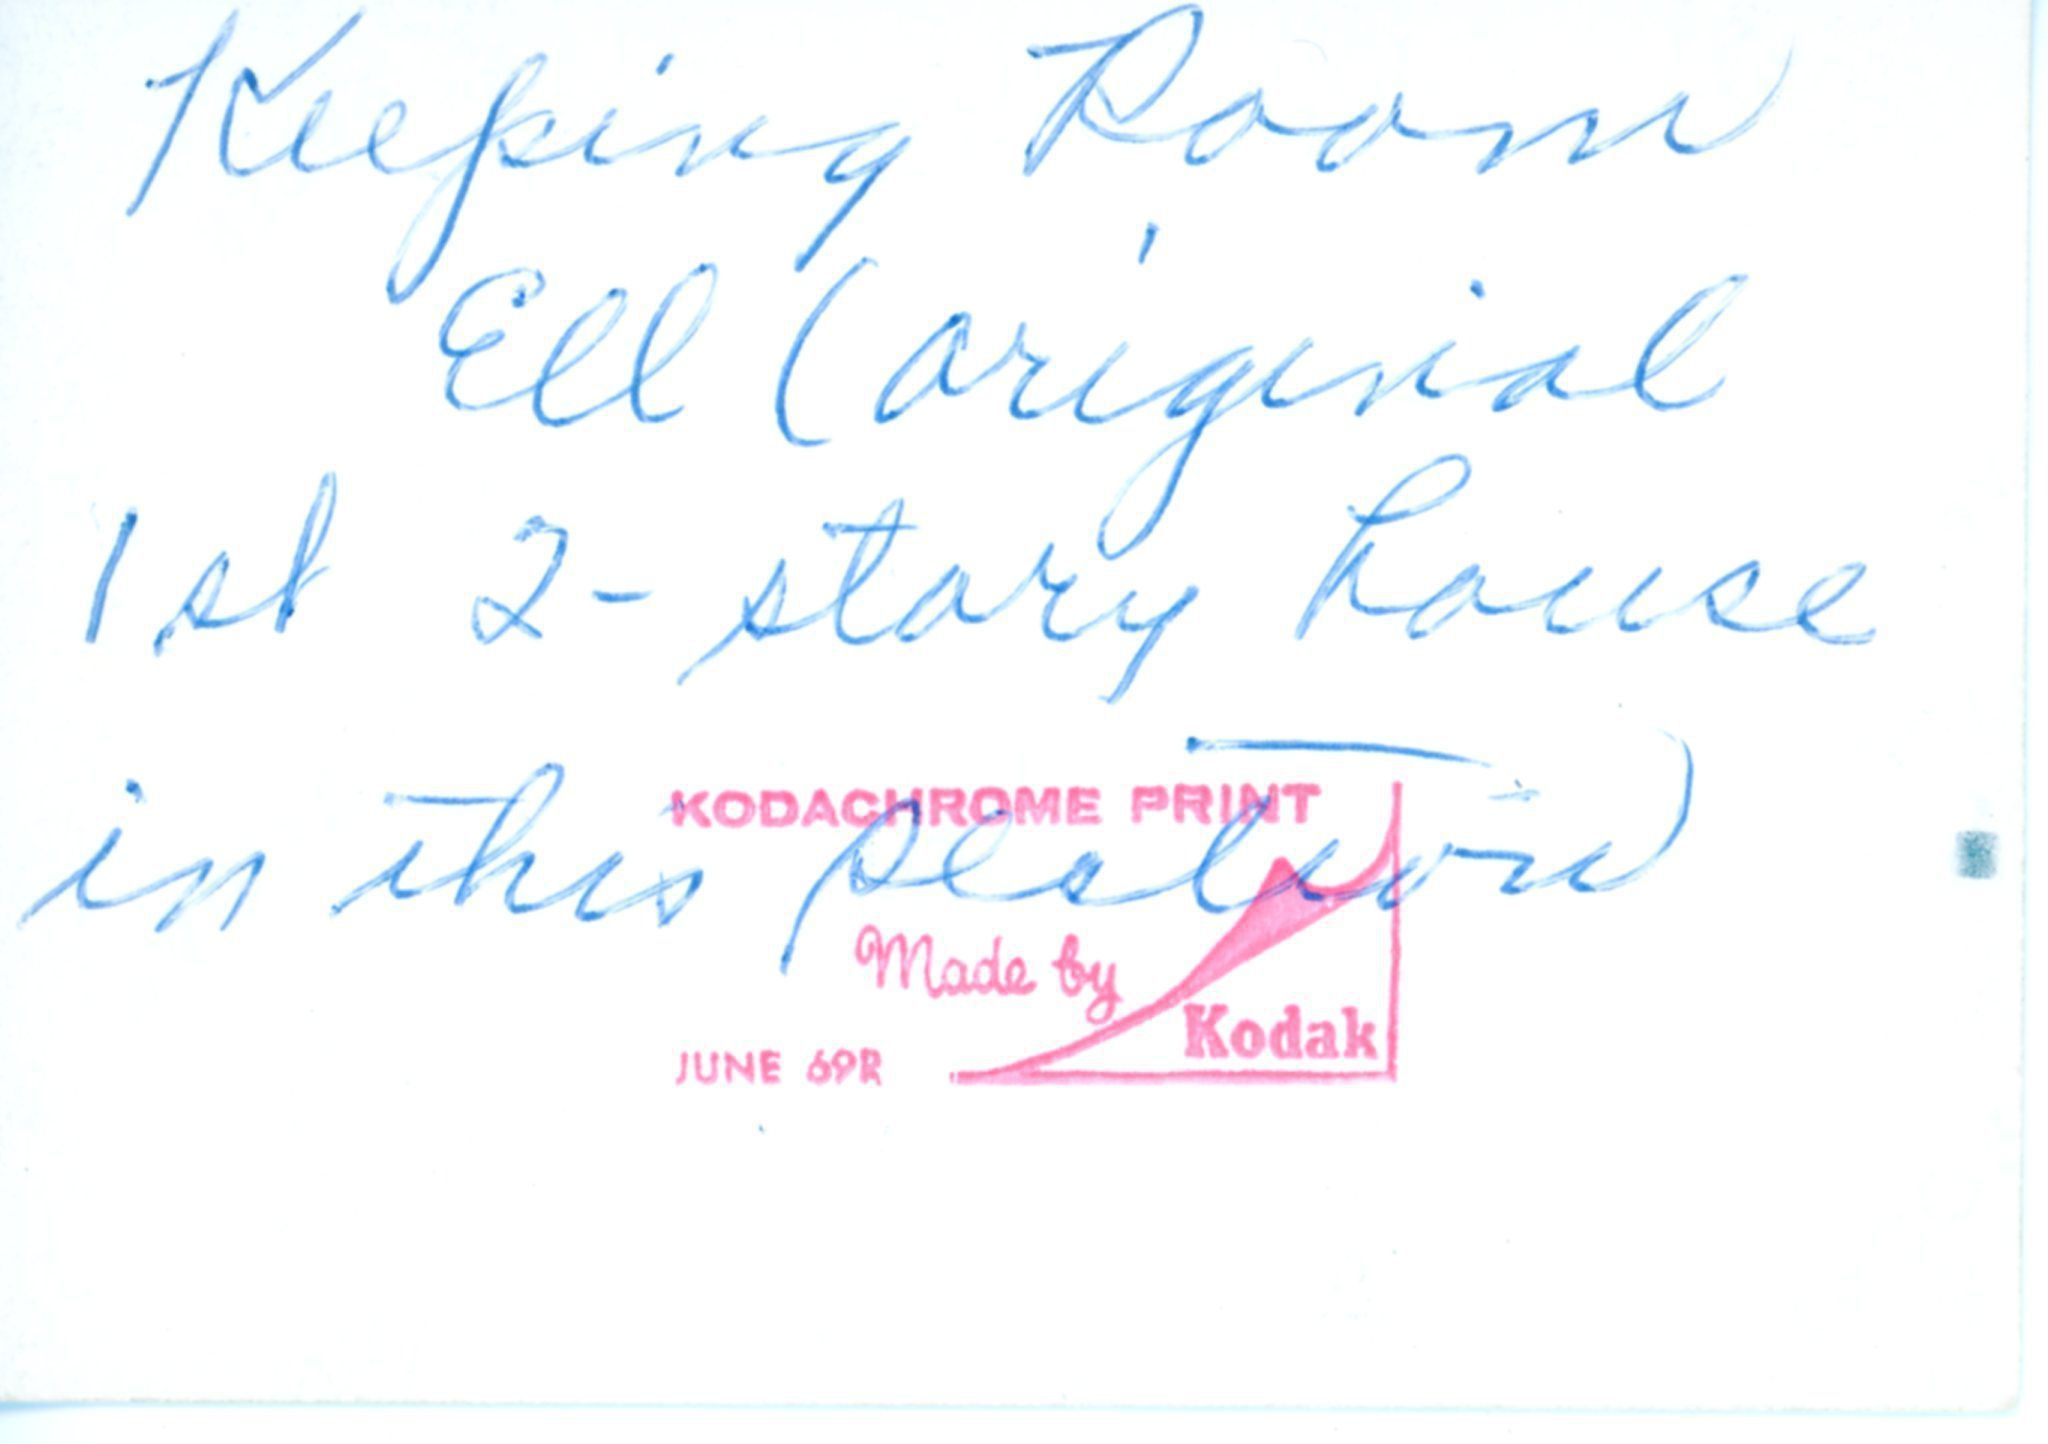 Keeping Room
Ell (original
1st 2-story house
in this section)
KODACHROME PRINT
Made by
Kodak
JUNE 69R